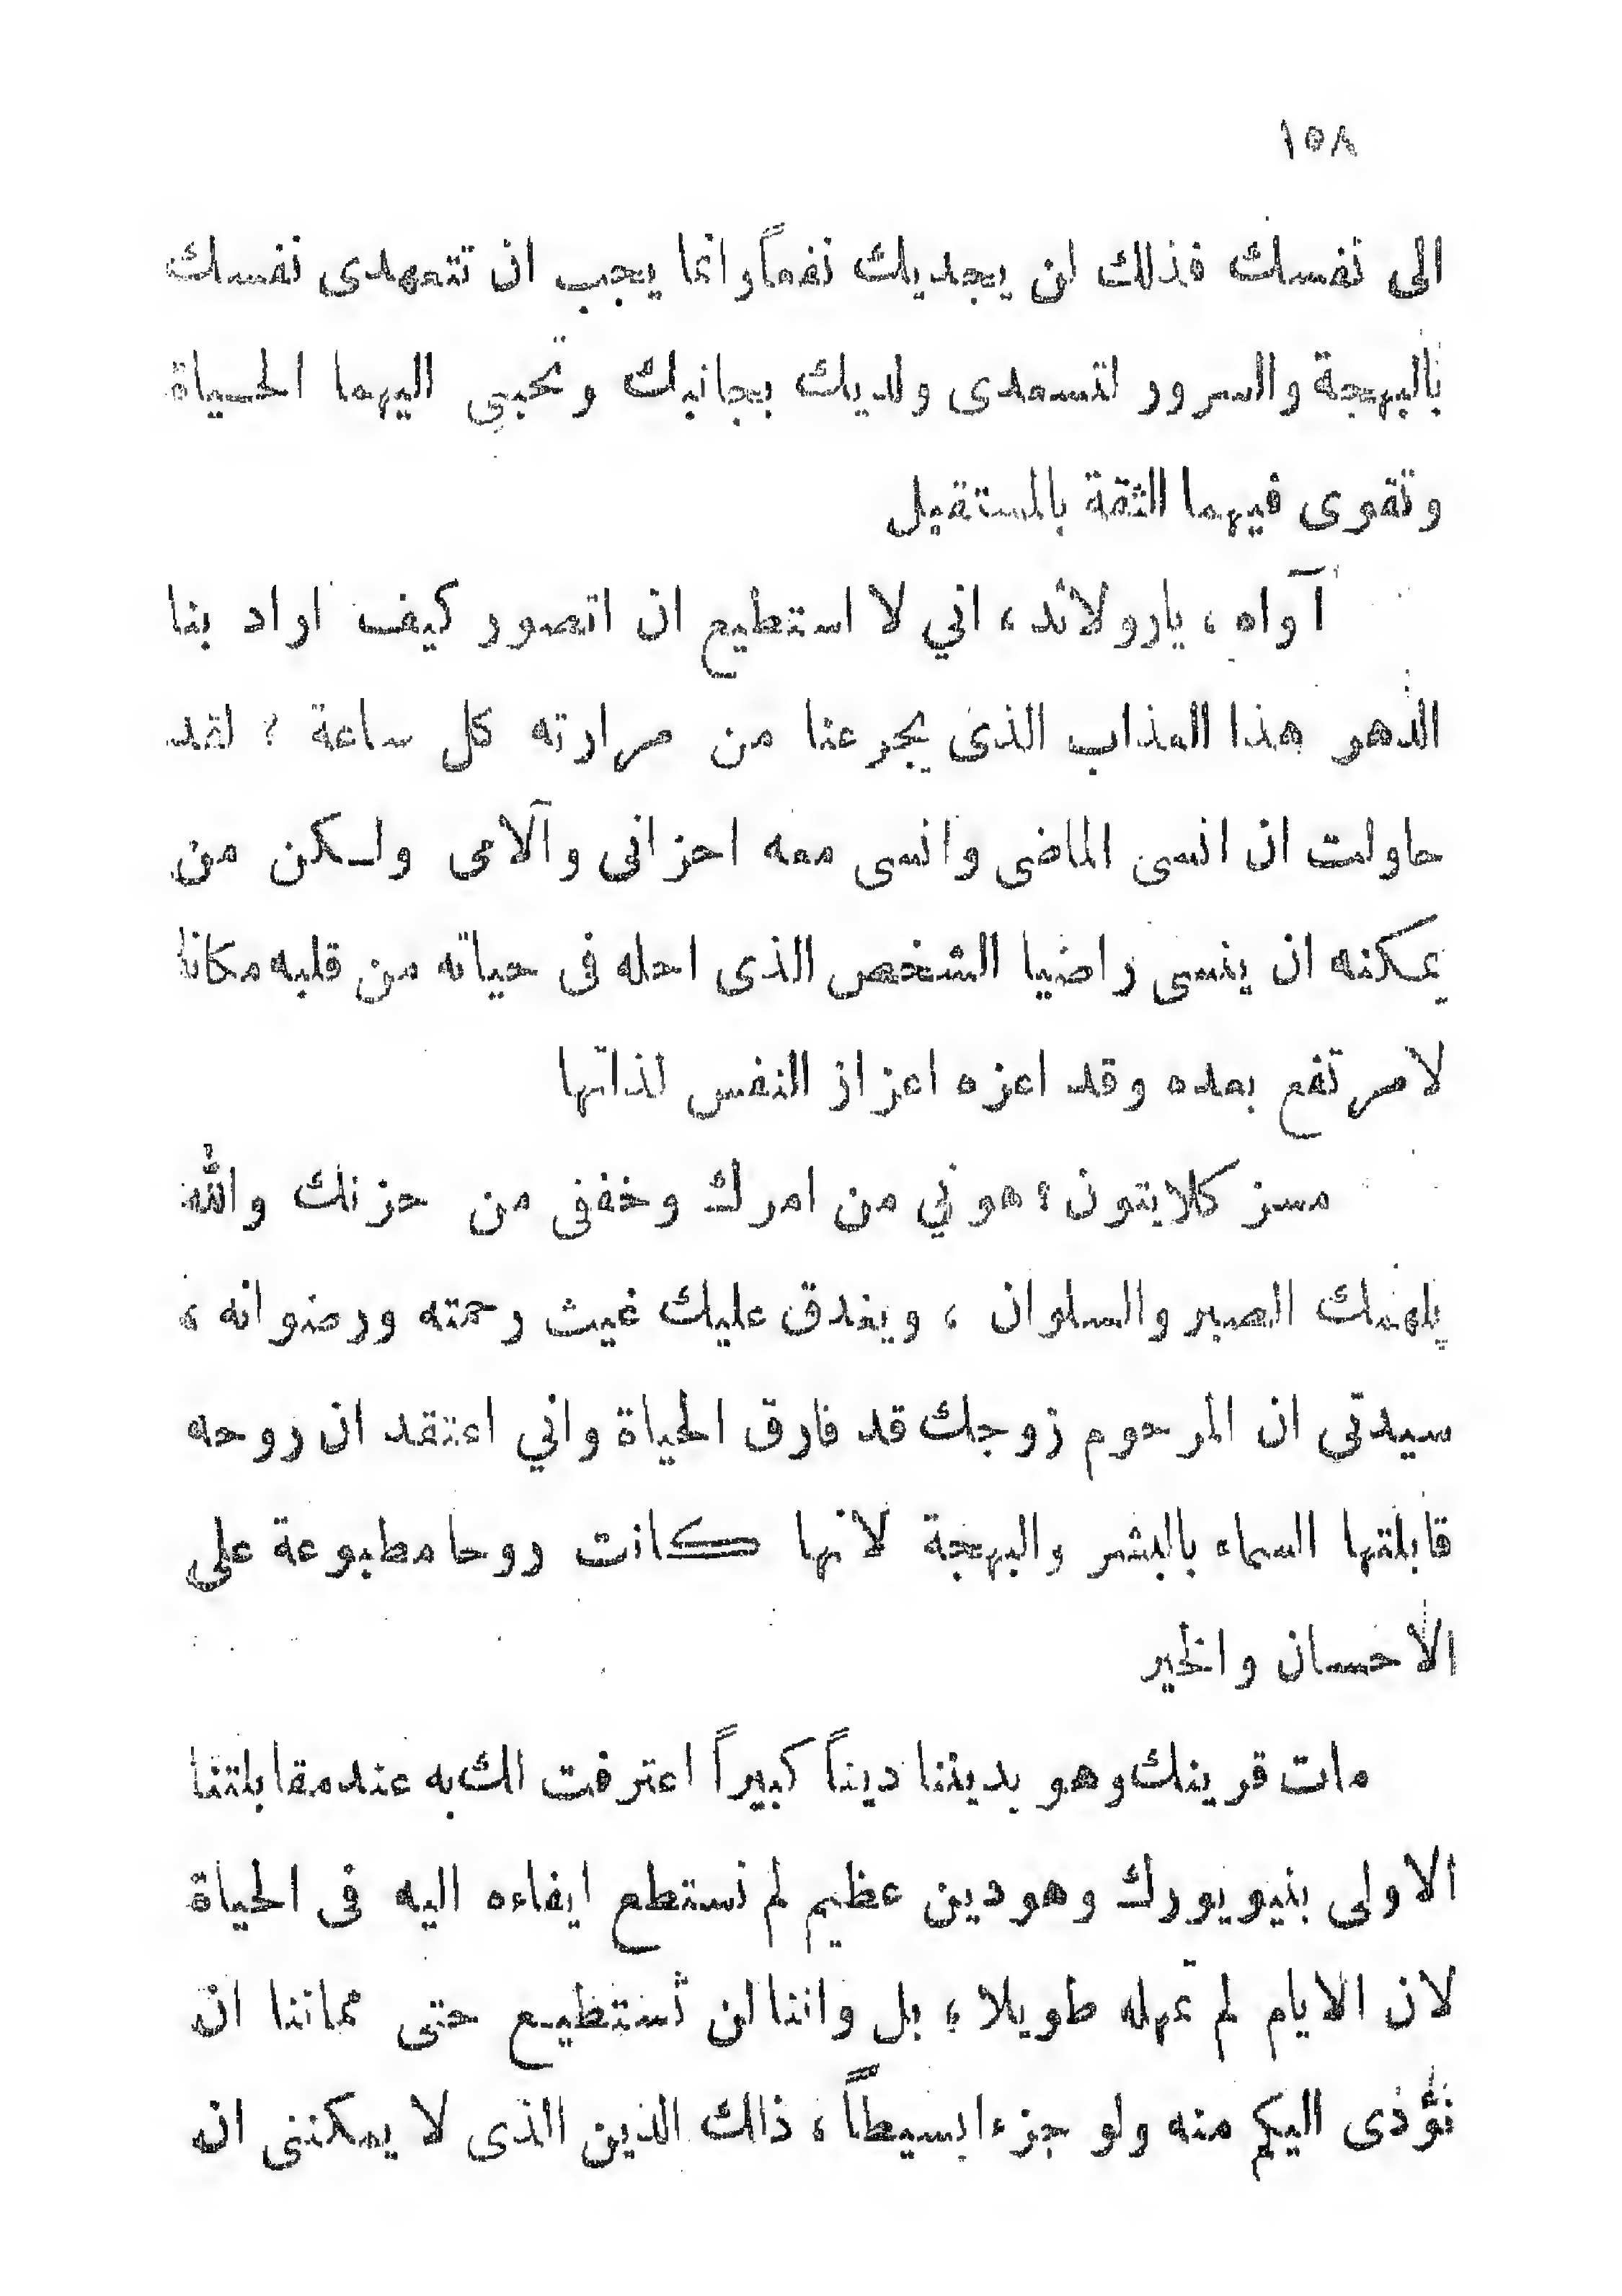 ١٥٨
الى نفسك فذلك لن يجديك نفعاً وانما يجب ان تتعهدى نفسك
بالبهجة والسرور لتسعدى ولديك بجانبك وتحببى اليهما الحياة
وتقوى فيهما الثقة بالمستقبل
آواه ، يارولاند ، اني لا استطيع ان اتصور كيف اراد بنا
الدهر هذا العذاب الذى يجرعنا من مرارته كل ساعة ؟ لقد
حاولت ان انسى الماضى وانسى معه احزانى وآلامى ولكن من
يمكنه ان ينسى راضيا الشخص الذى احله فى حياته من قلبه مكانا
لامرتفع بعده وقد اعزه اعزاز النفس لذاتها
مسز كلايتون ؛ هوني من امرك وخففى من حزنك والله
يلهمك الصبر والسلوان ، ويغدق عليك غيث رحمته ورضوانه ،
سيدتى ان المرحوم زوجك قد فارق الحياة واني اعتقد ان روحه
قابلتها السماء بالبشر والبهجة لانها كانت روحا مطبوعة على
الاحسان والخير
مات قرينك وهو بديننا ديناً كبيراً اعترفت لك به عند مقابلتنا
الاولى بنيويورك وهو دين عظيم لم نستطع ايفاءه اليه فى الحياة
لان الايام لم تمهله طويلا ؛ بل واننا لن نستطيع حتى مماتنا ان
نؤدى اليكم منه ولو جزءا بسيطاً ، ذلك الدين الذى لا يمكننى ان